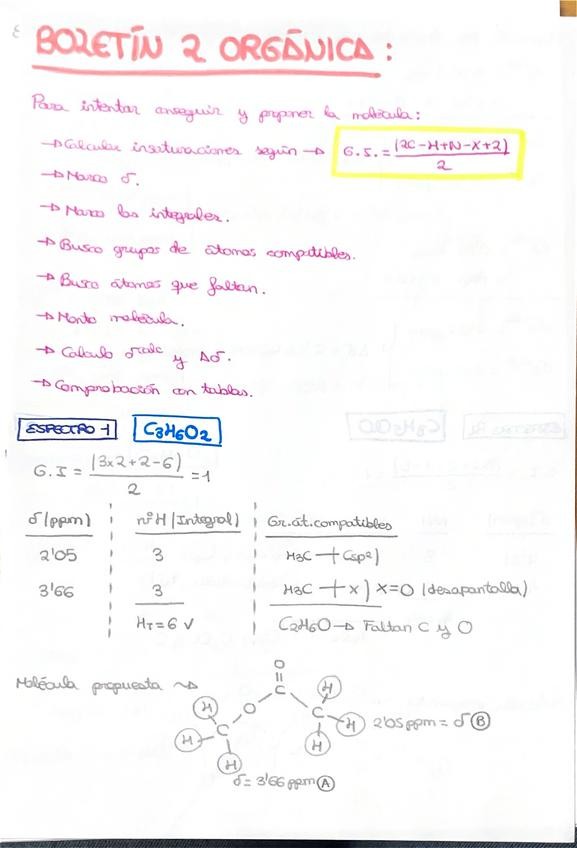 BOLETÍN 2 ORGÁNICA:
Para intentar conseguir y proponer la molécula:
→ Calcular insaturaciones según → G.I. = (2C-H+N-X+2) / 2
→ Marco δ.
→ Marco las integrales.
→ Busco grupos de átomos compatibles.
→ Busco átomos que faltan.
→ Monto molécula.
→ Calculo δcalc y Δδ.
→ Comprobación con tablas.
ESPECTRO-1 C3H6O2
G.I = (3x2+2-6) / 2 = 1
δ (ppm) nºH (Integral) Gr.át.compatibles
2'05 3 H3C + Csp2)
3'66 3 H3C + x) x=O (desapantalla)
HT=6 √ C2H6O → Faltan C y O
Molécula propuesta →
O
C
O
C
H
H
H
C
H
H
H
2'05 ppm = δ B
δ = 3'66 ppm A